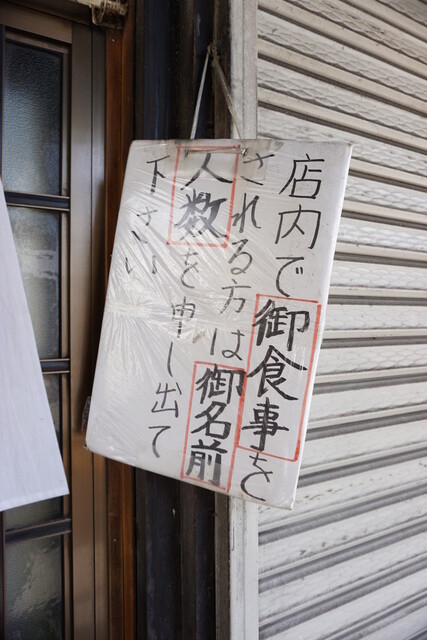 店内で御食事を
される方は御名前
人数を申し出て
下さい